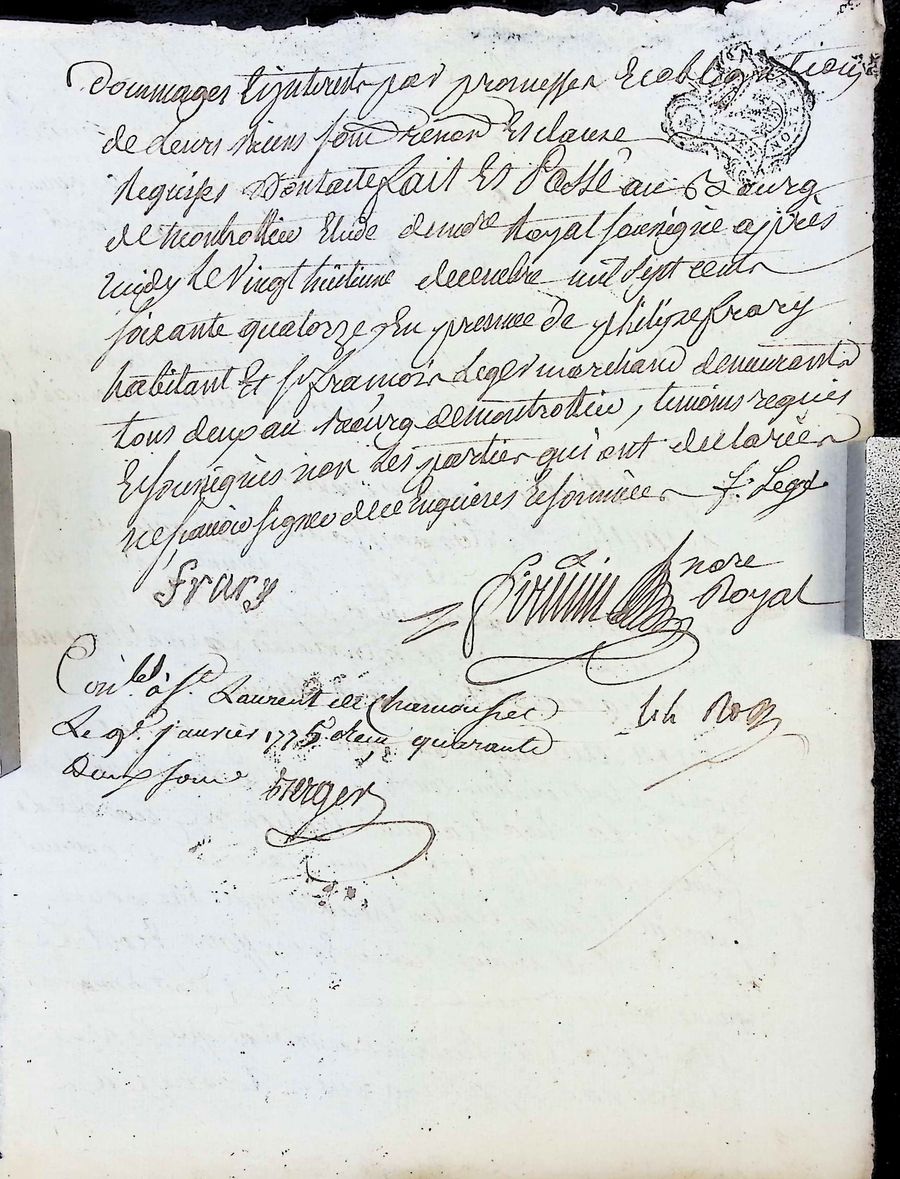 Dommages Linterets par promesses Et obligations
de Leurs biens soum renon Et clauze
Requises Dontacte fait Et Passé au Bourg
de montrottier Etude de nore Royal soussigné après
midy Le Vingt huitieme decembre mil sept cent
soixante quatorze En presence de philipe frary
habitant Et sr francois Leger marchand demeurants
tous deux au bourg de montrottier, temoins requis
Et soussignés non Les parties qui ont declarées
ne scavoir signer de ce Enquieres Et sommées f. Leger
frary
nore
Royal
Con.lé à St. Laurent de Chamousset
Le 9e. janvier 1775 quarante
Deux sous